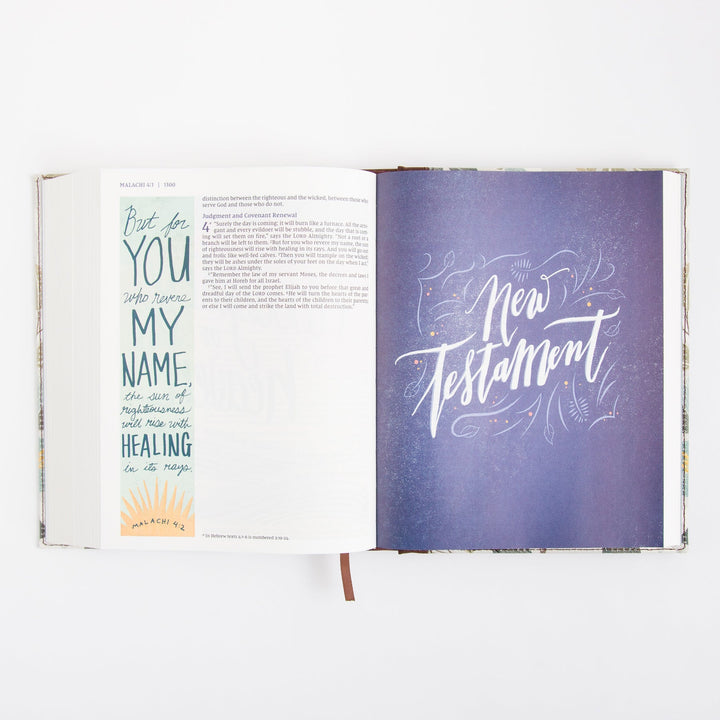 MALACHI 4:1 | 1300
But for
YOU
who revere
MY
NAME,
the sun of
righteousness
will rise with
HEALING
in its rays.
MALACHI 4:2
distinction between the righteous and the wicked, between those who
serve God and those who do not.
Judgment and Covenant Renewal
4 "Surely the day is coming; it will burn like a furnace. All the arro-
gant and every evildoer will be stubble, and the day that is com-
ing will set them on fire," says the LORD Almighty. "Not a root or a
branch will be left to them. ²But for you who revere my name, the sun
of righteousness will rise with healing in its rays. And you will go out
and frolic like well-fed calves. ³Then you will trample on the wicked;
they will be ashes under the soles of your feet on the day when I act,"
says the LORD Almighty.
⁴"Remember the law of my servant Moses, the decrees and laws I
gave him at Horeb for all Israel.
⁵"See, I will send the prophet Elijah to you before that great and
dreadful day of the LORD comes. ⁶He will turn the hearts of the
parents to their children, and the hearts of the children to their parents;
or else I will come and strike the land with total destruction."
In Hebrew texts 4:1-6 is numbered 3:19-24.
New
Testament